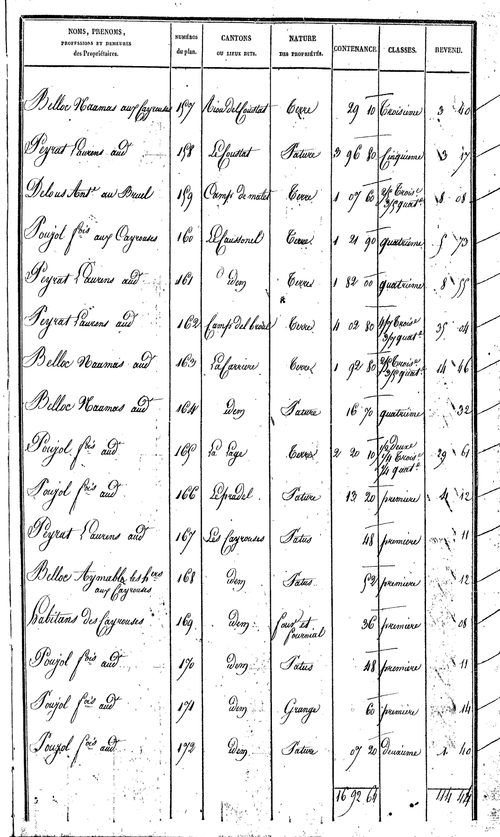 NOMS, PRENOMS, PROFESSIONS ET DEMEURES des Propriétaires. | NUMÉROS du plan. | CANTONS OU LIEUX DITS. | NATURE DES PROPRIÉTÉS. | CONTENANCE. | CLASSES. | REVENU.
Belloc Naamas aux Cayrouses 157 Riou del Coustat Terre 29 10 Troisième 3 40
Peyrat Laurens aud 158 Le Coustat Pature 3 96 80 Cinquième 3 17
Delous Ant.e au Bruel 159 Camp de malet Terre 1 07 60 2/5 Trois.e 3/5 quat.e 8 08
Poujol f.ois aux Cayrouses 160 Le Caussonel Terre 1 21 90 quatrième 5 73
Peyrat Laurens aud 161 idem Terre 1 82 00 quatrième 8 55
Peyrat Laurens aud 162 Camp del bruel Terre 4 02 80 4/7 Trois.e 3/7 quat.e 35 04
Belloc Naamas aud 163 La Carriere Terre 1 92 80 2/5 Trois.e 3/5 quat.e 14 46
Belloc Naamas aud 164 idem Pature 16 70 quatrième 32
Poujol f.ois aud 165 La Page Terre 2 20 10 1/2 Deuxe 1/4 Trois.e 1/4 quat.e 29 61
Poujol f.ois aud 166 Le pradel Pature 13 20 première 4 12
Peyrat Laurens aud 167 Les Cayrouses Patus 48 première 11
Belloc Aymable les h.ers aux Cayrouses 168 idem Patus 52 première 12
habitans des Cayrouses 169 idem four et fournial 36 première 08
Poujol f.ois aud 170 idem Patus 48 première 11
Poujol f.ois aud 171 idem Grange 60 première 14
Poujol f.ois aud 172 idem Pature 07 20 Deuxième 1 40
16 92 64